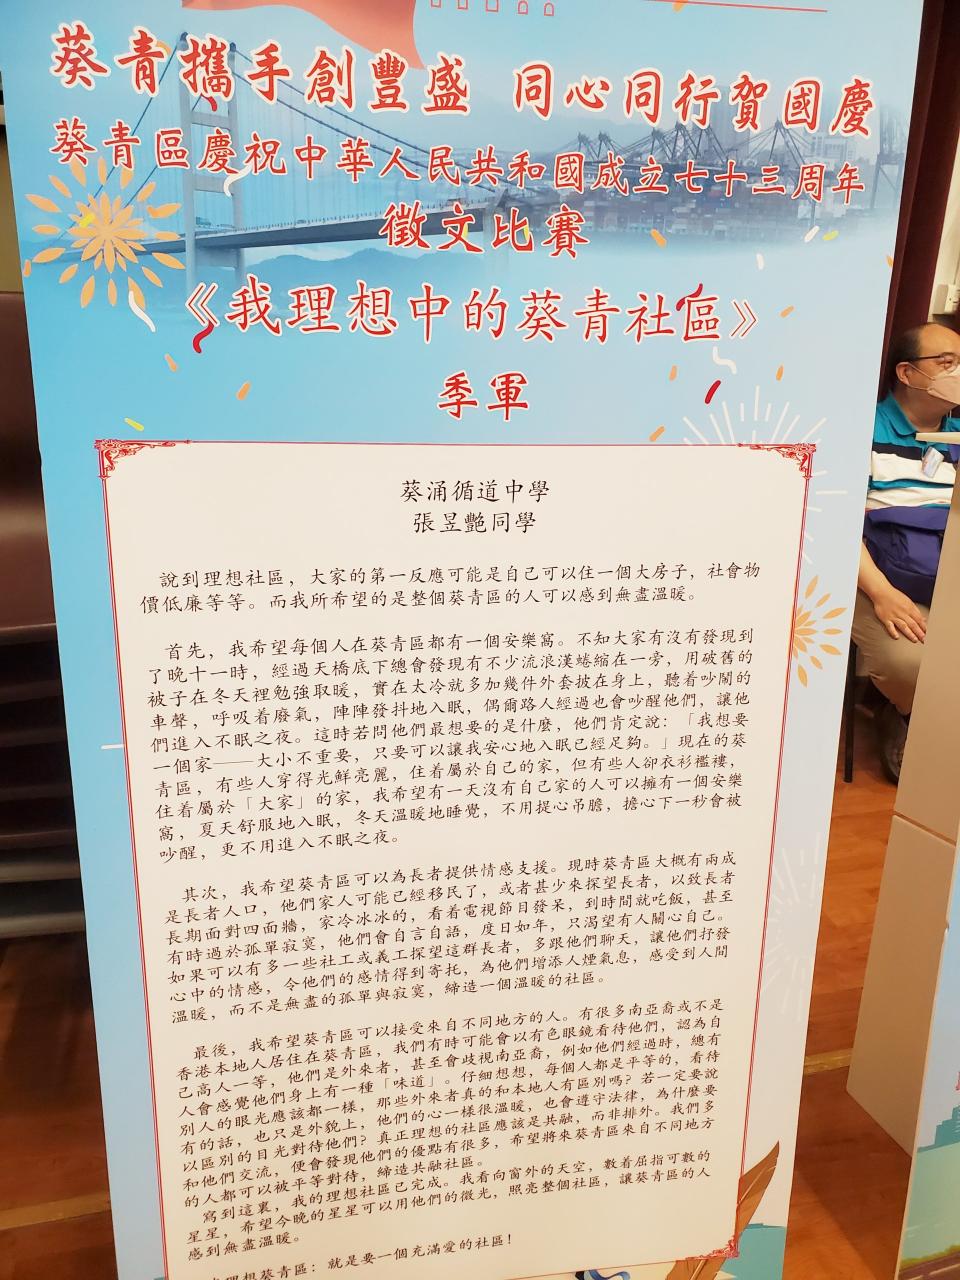 葵青攜手創豐盛 同心同行賀國慶
葵青區慶祝中華人民共和國成立七十三周年
徵文比賽
《我理想中的葵青社區》
季軍
葵涌循道中學
張昱艷同學
說到理想社區，大家的第一反應可能是自己可以住一個大房子，社會物
價低廉等等。而我所希望的是整個葵青區的人可以感到無盡溫暖。
首先，我希望每個人在葵青區都有一個安樂窩。不知大家有沒有發現到
了晚十一時，經過天橋底下總會發現有不少流浪漢蜷縮在一旁，用破舊的
被子在冬天裡勉強取暖，實在太冷就多加幾件外套披在身上，聽着吵鬧的
車聲，呼吸着廢氣，陣陣發抖地入眠，偶爾路人經過也會吵醒他們，讓他
們進入不眠之夜。這時若問他們最想要的是什麼，他們肯定說：「我想要
一個家——大小不重要，只要可以讓我安心地入眠已經足夠。」現在的葵
青區，有些人穿得光鮮亮麗，住着屬於自己的家，但有些人卻衣衫襤褸，
住着屬於「大家」的家，我希望有一天沒有自己家的人可以擁有一個安樂
窩，夏天舒服地入眠，冬天溫暖地睡覺，不用提心吊膽，擔心下一秒會被
吵醒，更不用進入不眠之夜。
其次，我希望葵青區可以為長者提供情感支援。現時葵青區大概有兩成
是長者人口，他們家人可能已經移民了，或者甚少來探望長者，以致長者
長期面對四面牆，家冷冰冰的，看着電視節目發呆，到時間就吃飯，甚至
有時過於孤單寂寞，他們會自言自語，度日如年，只渴望有人關心自己。
如果可以有多一些社工或義工探望這群長者，多跟他們聊天，讓他們抒發
心中的情感，令他們的感情得到寄托，為他們增添人煙氣息，感受到人間
溫暖，而不是無盡的孤單與寂寞，締造一個溫暖的社區。
最後，我希望葵青區可以接受來自不同地方的人。有很多南亞裔或不是
香港本地人居住在葵青區，我們有時可能會以有色眼鏡看待他們，認為自
己高人一等，他們是外來者，甚至會歧視南亞裔，例如他們經過時，總有
人會感覺他們身上有一種「味道」。仔細想想，每個人都是平等的，看待
別人的眼光應該都一樣，那些外來者真的和本地人有區別嗎？若一定要說
有的話，也只是外貌上，他們的心一樣很溫暖，也會遵守法律，為什麼要
以區別的目光對待他們？真正理想的社區應該是共融，而非排外。我們多
和他們交流，便會發現他們的優點有很多，希望將來葵青區來自不同地方
的人都可以被平等對待，締造共融社區。
寫到這裏，我的理想社區已完成。我看向窗外的天空，數着屈指可數的
星星，希望今晚的星星可以用他們的微光，照亮整個社區，讓葵青區的人
感到無盡溫暖。
理想葵青區：就是要一個充滿愛的社區！